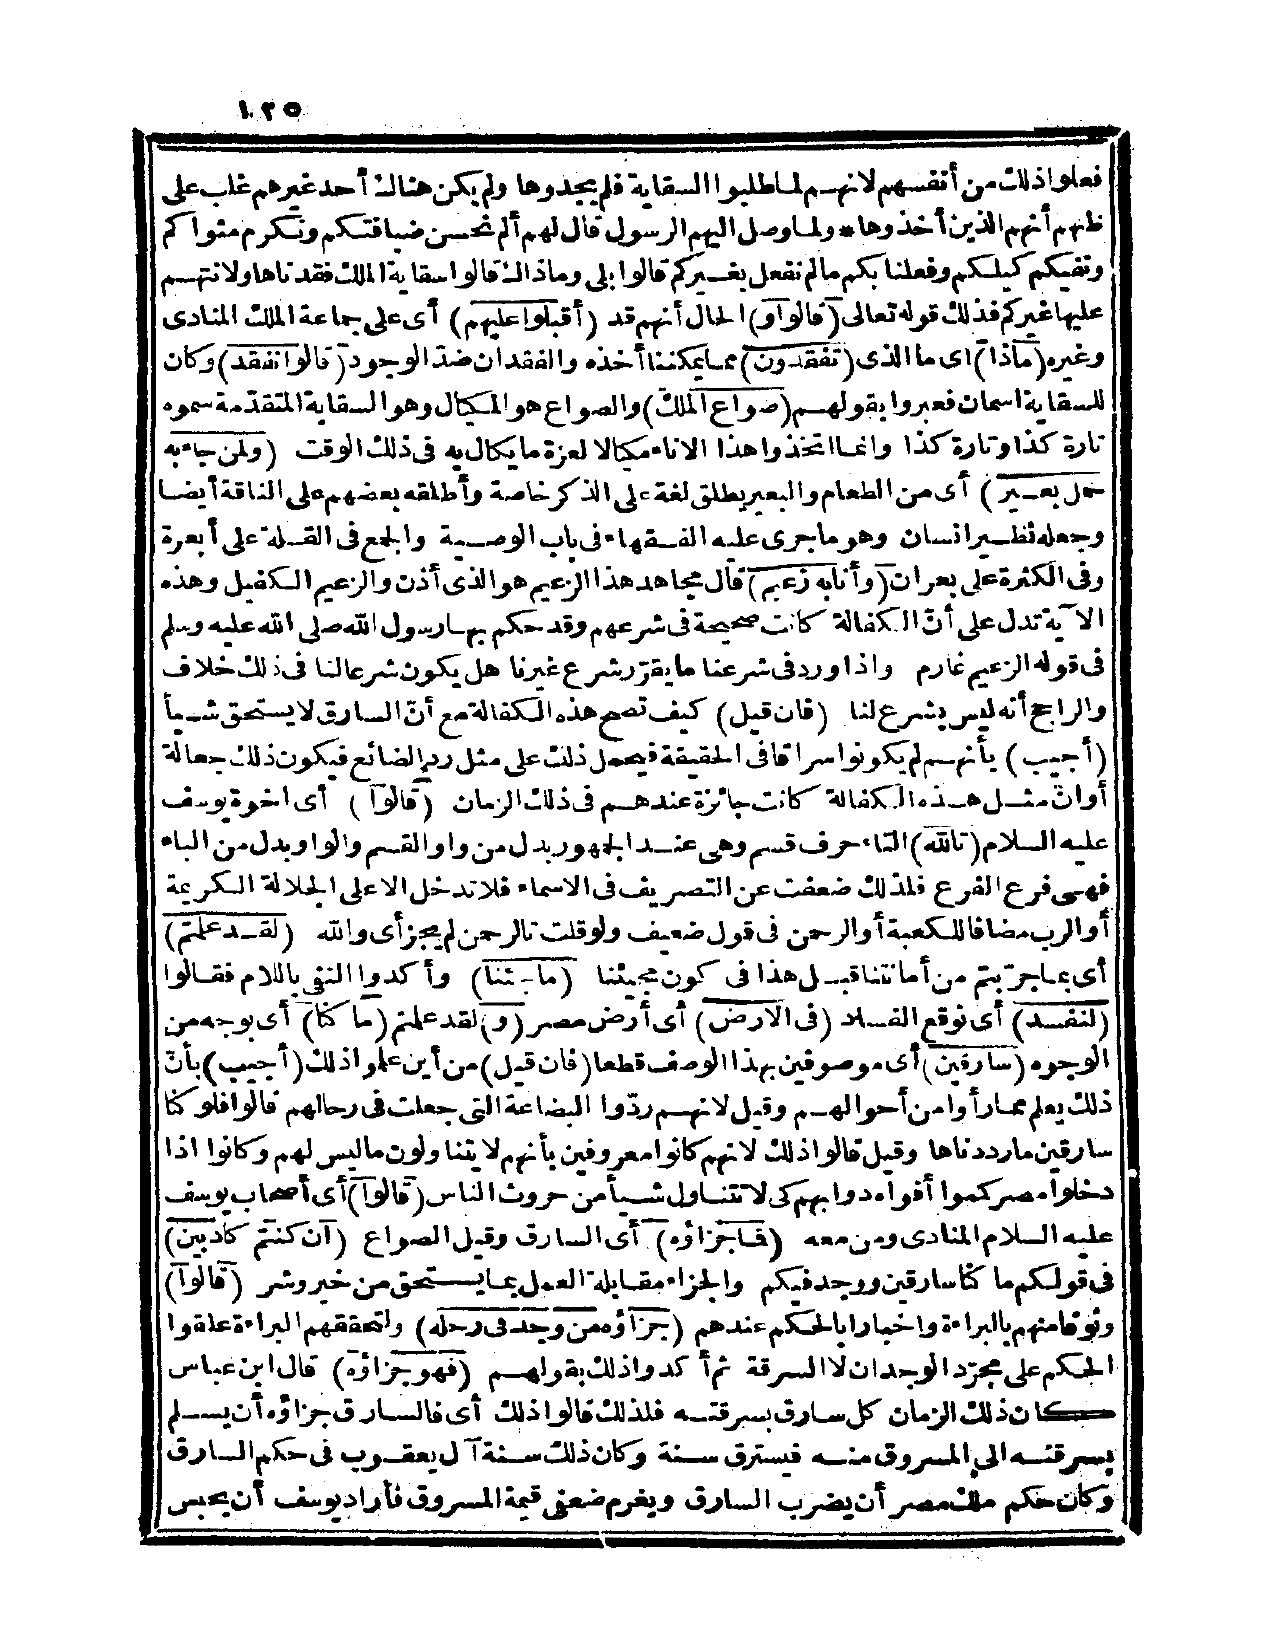 ١٢٥
فعلوا ذلك من أنفسهم لانهم لما طلبوا السقاية فلم يجدوها ولم يكن هناك أحد غيرهم غلب على
ظنهم أنهم الذين أخذوها * ولما وصل اليهم الرسول قال لهم ألم نحسن ضيافتكم ونكرم مثواكم
ونفيكم كيلكم وفعلنا بكم ما لم نفعل بغيركم قالوا بلى وماذاك قالوا سقاية الملك فقدناها ولانتهم
عليها غيركم فذلك قوله تعالى (قالوا و) الحال أنهم قد (أقبلوا عليهم) أى على جماعة الملك المنادى
وغيره (ماذا) اى ما الذى (تفقدون) مما يمكننا أخذه والفقدان ضدّ الوجود (قالوا نفقد) وكان
للسقاية اسمان فعبروا بقولهم (صواع الملك) والصواع هو المكيال وهو السقاية المتقدّمة سموه
تارة كذا وتارة كذا وانما اتخذوا هذا الاناء مكيالا لعزة ما يكال به فى ذلك الوقت (ولمن جاء به
حمل بعير) أى من الطعام والبعير يطلق لغة على الذكر خاصة وأطلقه بعضهم على الناقة أيضا
وجعله نظير انسان وهو ما جرى عليه الفقهاء فى باب الوصية والجمع فى القلة على أبعرة
وفى الكثرة على بعران (وأنا به زعيم) قال مجاهد هذا الزعيم هو الذى أذن والزعيم الكفيل وهذه
الآية تدل على أنّ الكفالة كانت صحيحة فى شرعهم وقد حكم بها رسول الله صلى الله عليه وسلم
فى قوله الزعيم غارم واذا ورد فى شرعنا ما يقرّر شرع غيرنا هل يكون شرعا لنا فى ذلك خلاف
والراجح أنه ليس بشرع لنا (فان قيل) كيف تصح هذه الكفالة مع أنّ السارق لا يستحق شيأ
(أجيب) بأنهم لم يكونوا سراقا فى الحقيقة فيحمل ذلك على مثل ردّ الضائع فيكون ذلك جعالة
أو انّ مثل هذه الكفالة كانت جائزة عندهم فى ذلك الزمان (قالوا) أى اخوة يوسف
عليه السلام (تالله) التاء حرف قسم وهى عند الجمهور بدل من واو القسم والواو بدل من الباء
فهى فرع الفرع فلذلك ضعفت عن التصريف فى الاسماء فلا تدخل الا على الجلالة الكريمة
أو الرب مضافا للكعبة أو الرحمن فى قول ضعيف ولو قلت تالرحمن لم يجز أى والله (لقد علمتم)
أى بما جرّبتم من أمانتنا قبل هذا فى كون مجيئنا (ما جئنا) وأكدوا النفى باللام فقالوا
(لنفسد) أى نوقع الفساد (فى الارض) أى أرض مصر (و) لقد علمتم (ما كنا) أى بوجه من
الوجوه (سارقين) أى موصوفين بهذا الوصف قطعا (فان قيل) من أين علموا ذلك (أجيب) بأنّ
ذلك يعلم مما رأوا من أحوالهم وقيل لانهم ردّوا البضاعة التى جعلت فى رحالهم قالوا فلو كنا
سارقين ما رددناها وقيل قالوا ذلك لانهم كانوا معروفين بأنهم لا يتناولون ما ليس لهم وكانوا اذا
دخلوا مصر كموا أفواه دوابهم كى لا تتناول شيأ من حروث الناس (قالوا) أى أصحاب يوسف
عليه السلام المنادى ومن معه (فما جزاؤه) أى السارق وقيل الصواع (ان كنتم كاذبين)
فى قولكم ما كنا سارقين ووجد فيكم والجزاء مقابلة العمل بما يستحق من خير وشر (قالوا)
وثوقا منهم بالبراءة واخبارا بالحكم عندهم (جزاؤه من وجد فى رحله) ولتحققهم البراءة علقوا
الحكم على مجرّد الوجدان لا السرقة ثم أكدوا ذلك بقولهم (فهو جزاؤه) قال ابن عباس
كان ذلك الزمان كل سارق بسرقته فلذلك قالوا ذلك أى فالسارق جزاؤه أن يسلم
بسرقته الى المسروق منه فيسترق سنة وكان ذلك سنة آل يعقوب فى حكم السارق
وكان حكم ملك مصر أن يضرب السارق ويغرم ضعفى قيمة المسروق فأراد يوسف أن يحبس